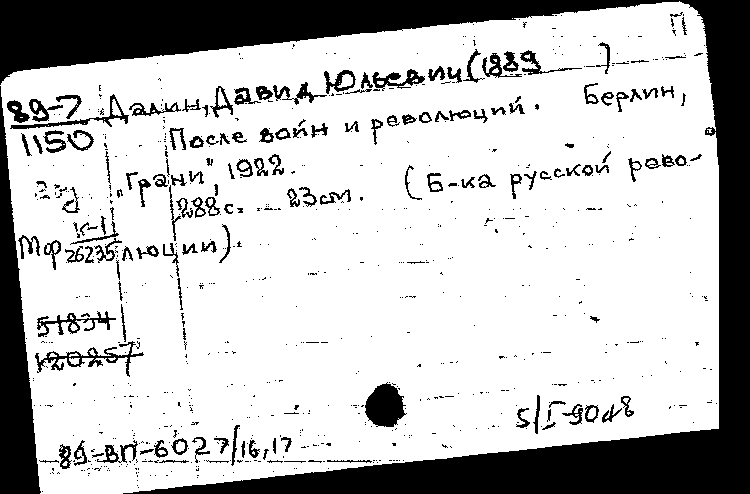 П
89-7 Далин, Давид Юльевич (1889 )
1150 После войн и революций. Берлин,
"Грани", 1922.
288 с. 23 см. (Б-ка русской рево-
Мф К-1
26235 люции).
51834
К20257
89-ВП-6027/16,17